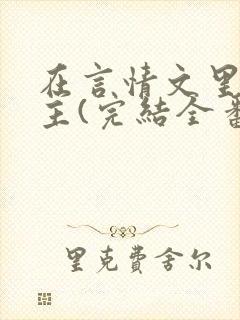 在言情文里
主(完結全
里克費舍尔